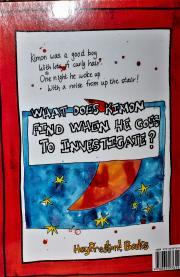 Kimon was a good boy
With lots of curly hair
One night he woke up
With a noise from up the stair!
WHAT DOES KIMON
FIND WHEN HE GOES
TO INVESTIGATE?
HeyPresto! Books